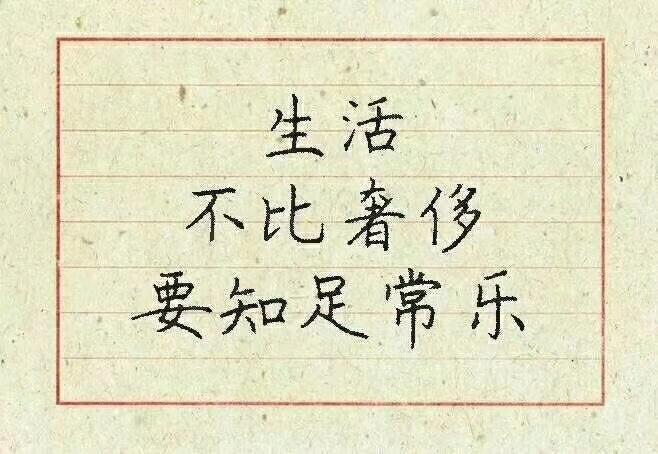 生活
不比奢侈
要知足常乐